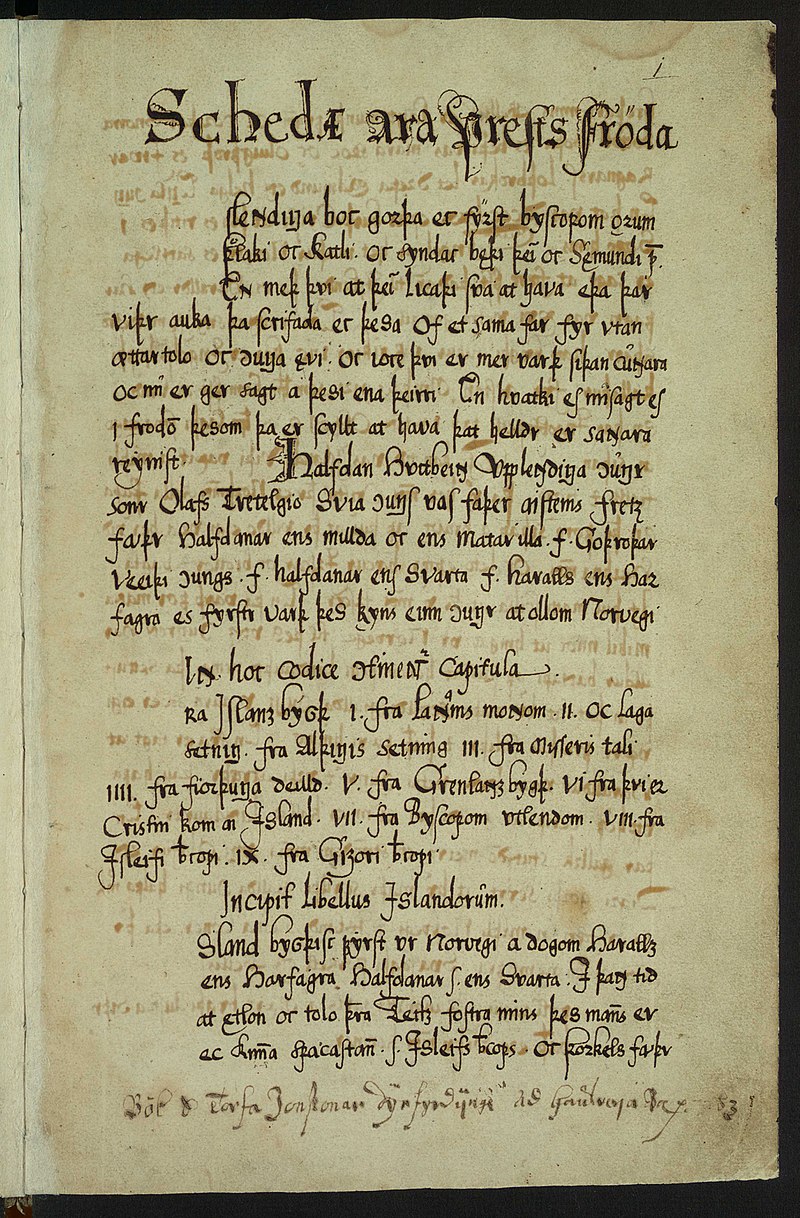 1
Schedæ ara prests fröda
slendinga boc gorþa ec fyrst byscopom ǫrum
þlaki oc Katli. oc syndac beþi þeī oc Sęmundi p̄.
En meþ þvi at þeī licaþi sva at hava eþa þar
viþr auka þa scrifada ec þesa of et sama far fyr utan
ættartolo oc ęvi. oc iocc þvi er mer varþ siþan cuɴara
oc nu er ger sagt a þesi ena þeirri En hvatki es misagt es
i frodō þesom þa er scyllt at hava þat helldr er saɴara
reynist. Halfdan hvitbeiɴ Upplendinga
sonr Olafs Tretelgio Svia vas faþer aistems fretz
faþr Halfdanar ens millda oc ens matarilla . f . Goþroþar
veiþi . f . halfdanar ens Svarta f. haralls ens har
fagra es fyrstr varþ þes kyns einn at ollom Norvegi
Iɴ hoc codice Capitula.
ra Islanz bygþ I. fra monom . II. oc laga
setning. fra Alþingis setning III. fra Misseris tali
IIII. fra fiorþunga deilld. V. fra Grenlanz bygþ. VI fra þvi er
Cristni kom ai Island. VII. fra Byscopom utlendom. VIII. fra
Isleifi b̄copi. IX. fra Gizori b̄copi
Incipit Libellus Islandorum.
Sland bygþisc fyrst ur Norvegi a dogom Harallz
ens Harfagra Halfdanar s. ens Svarta. I þan tid
at ętlon oc tolo þra Teitz fostra mins þes mans er
ec spacastan . s . Isleifs b̄cops. Oc þorkels faþr
Bök Torfa Jonssonar ad